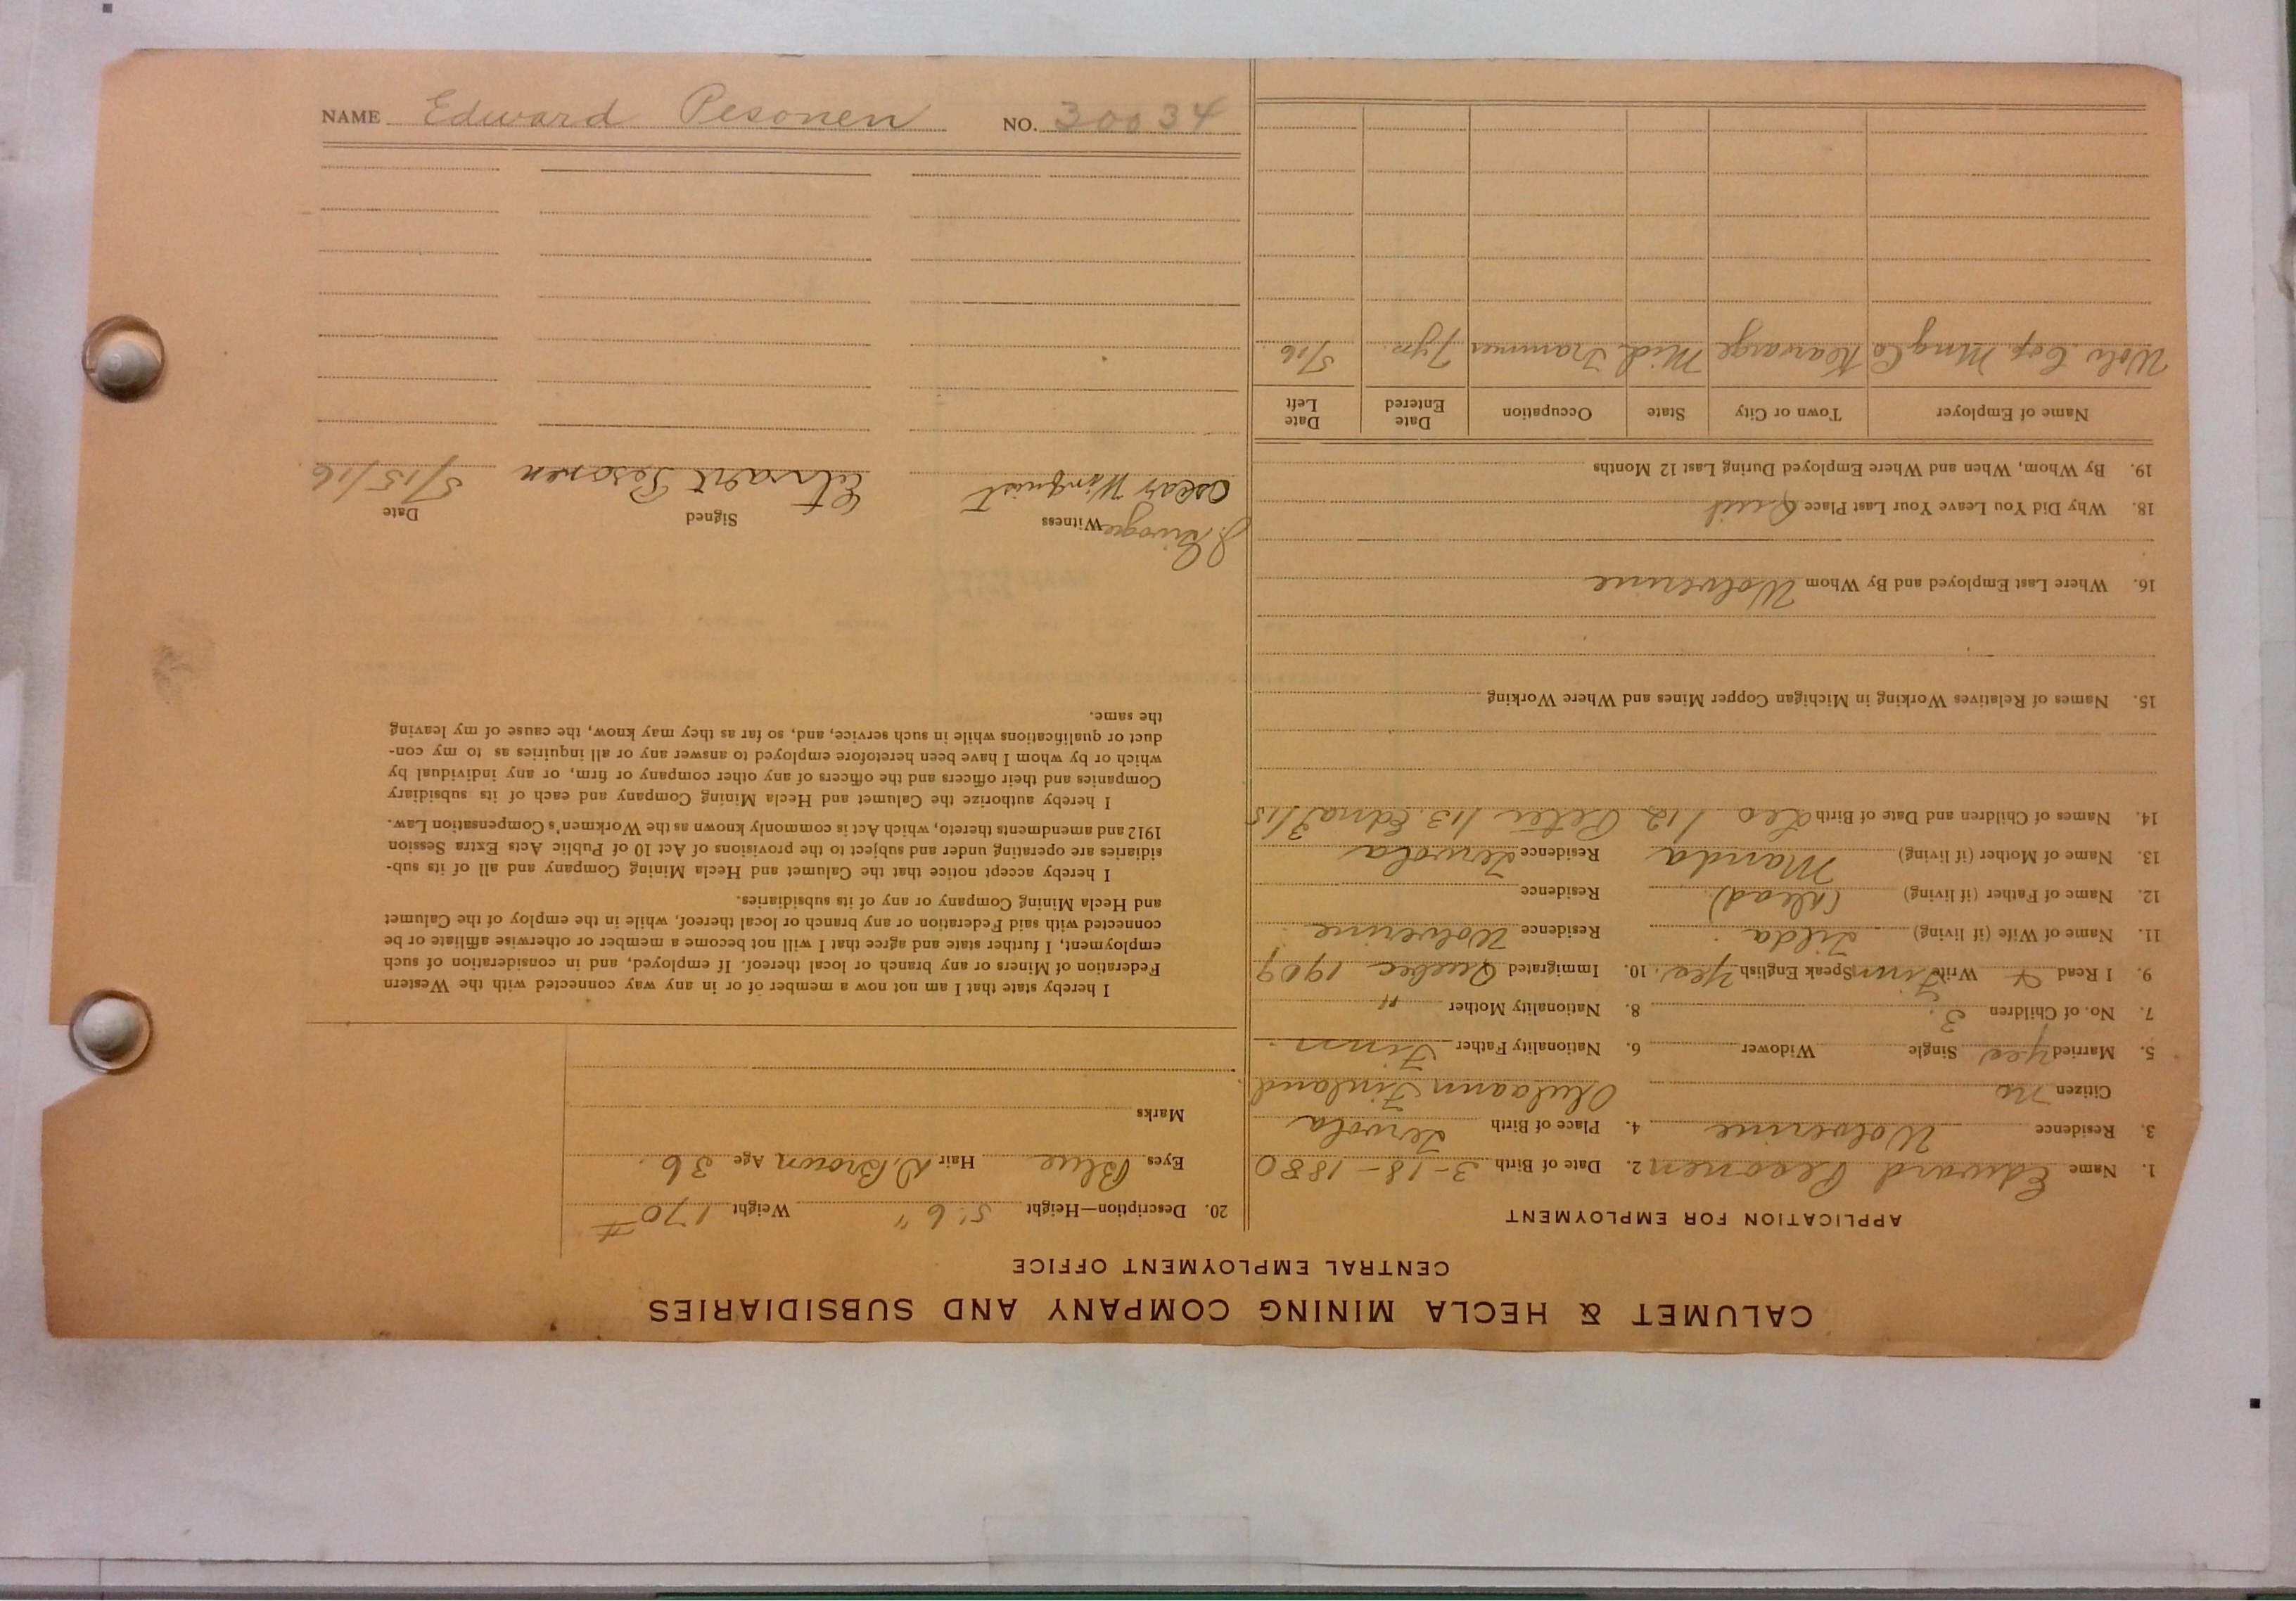 CALUMET & HECLA MINING COMPANY AND SUBSIDIARIES
CENTRAL EMPLOYMENT OFFICE
APPLICATION FOR EMPLOYMENT
1. Name Edward Pesonen 2. Date of Birth 3-18-1880
3. Residence Wolverine 4. Place of Birth Tervola
Citizen no Finland
5. Married yes Single Widower 6. Nationality Father Finn
7. No. of Children 3. 8. Nationality Mother "
9. I Read & Write Finn Speak English yes. 10. Immigrated Quebec 1909
11. Name of Wife (if living) Tilda Residence Wolverine
12. Name of Father (if living) (dead) Residence
13. Name of Mother (if living) Manda Residence Tervola
14. Names of Children and Date of Birth Leo 1/12 Peter 1/13 Edna 3/15
15. Names of Relatives Working in Michigan Copper Mines and Where Working
16. Where Last Employed and By Whom Wolverine
18. Why Did You Leave Your Last Place Quit
19. By Whom, When and Where Employed During Last 12 Months
Name of Employer Town or City State Occupation Date Entered Date Left
Wolv. Cop. Mng Co Kearsarge Mich. Trammer 7 yrs. 5/16
20. Description—Height 5' 6" Weight 170 #
Eyes Blue Hair D. Brown Age 36
Marks
I hereby state that I am not now a member of or in any way connected with the Western
Federation of Miners or any branch or local thereof. If employed, and in consideration of such
employment, I further state and agree that I will not become a member or otherwise affiliate or be
connected with said Federation or any branch or local thereof, while in the employ of the Calumet
and Hecla Mining Company or any of its subsidiaries.
I hereby accept notice that the Calumet and Hecla Mining Company and all of its sub-
sidiaries are operating under and subject to the provisions of Act 10 of Public Acts Extra Session
1912 and amendments thereto, which Act is commonly known as the Workmen's Compensation Law.
I hereby authorize the Calumet and Hecla Mining Company and each of its subsidiary
Companies and their officers and the officers of any other company or firm, or any individual by
which or by whom I have been heretofore employed to answer any or all inquiries as to my con-
duct or qualifications while in such service, and, so far as they may know, the cause of my leaving
the same.
Witness Signed Date
Oscar Winquist Edvart Pesonen 5/15/16
NAME Edward Pesonen NO. 30034